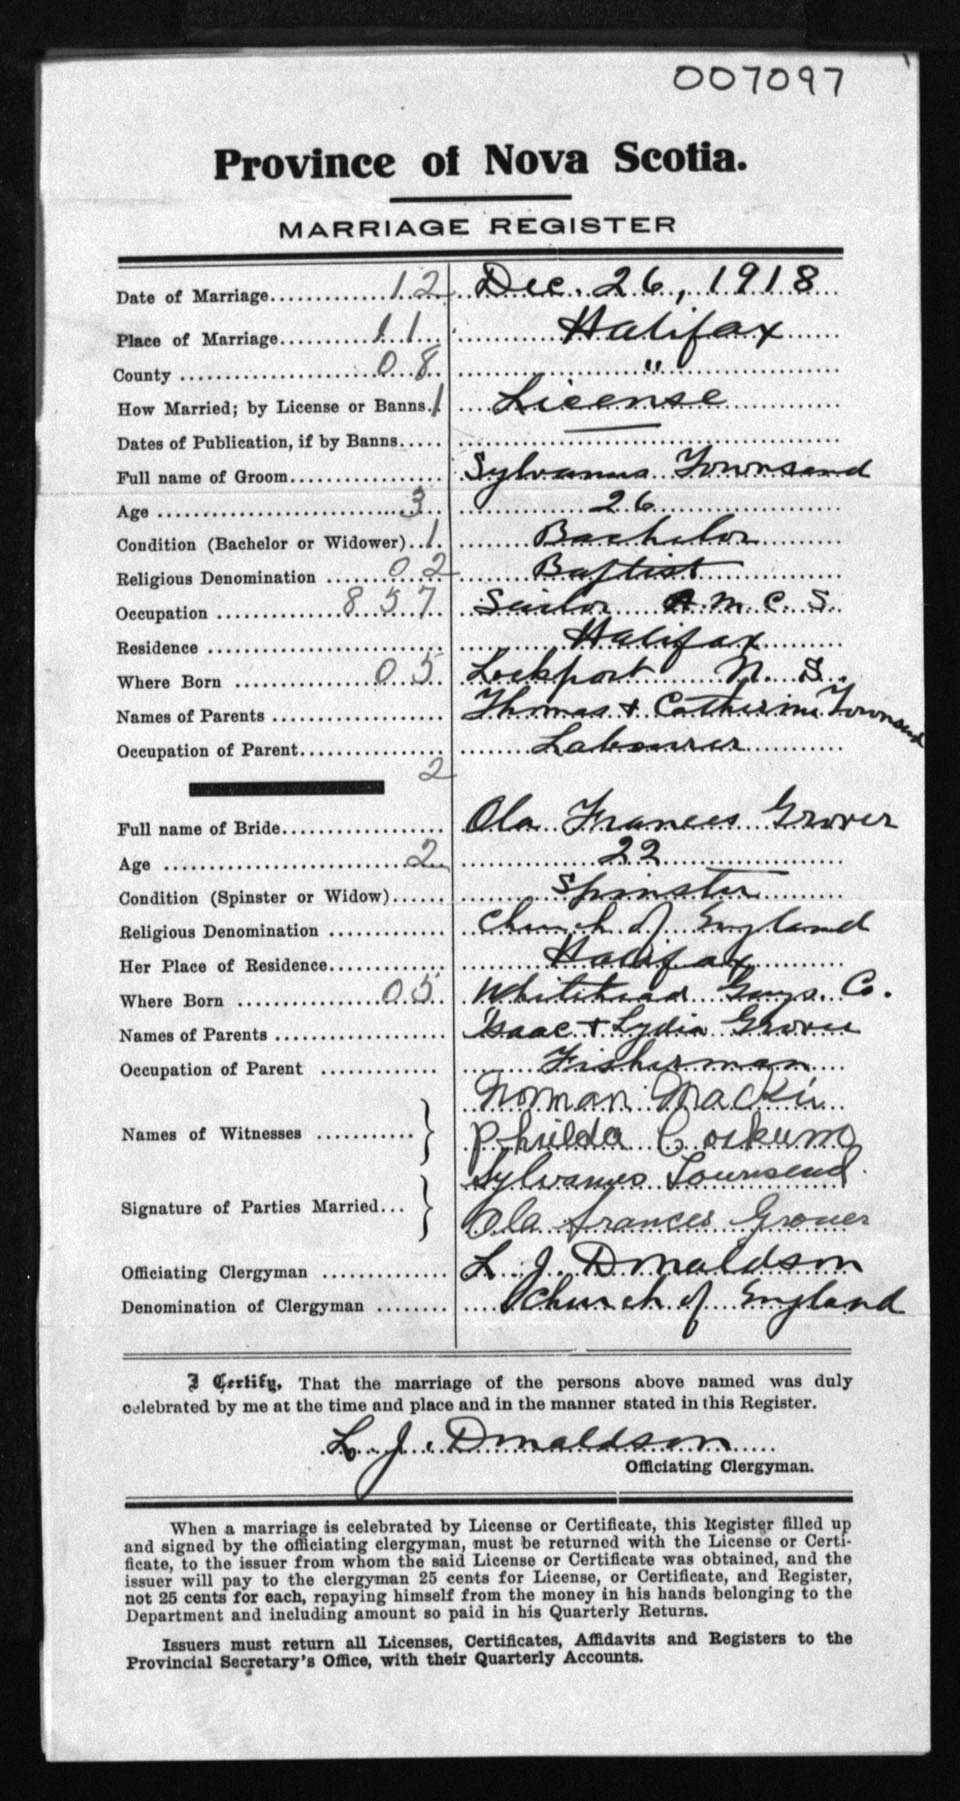 007097
Province of Nova Scotia.
MARRIAGE REGISTER
Date of Marriage............. 12 Dec. 26, 1918
Place of Marriage........... 11 Halifax
County ..................... 08 "
How Married; by License or Banns.. 1 License
Dates of Publication, if by Banns..... —
Full name of Groom.................. Sylvanus Townsend
Age .......................... 3 26
Condition (Bachelor or Widower).. 1 Bachelor
Religious Denomination ....... 02 Baptist
Occupation ............ 857 Sailor R.M.C.S.
Residence ........................ Halifax
Where Born .............. 05 Lockport N. S.
Names of Parents .................. Thomas & Catherine Townsend
Occupation of Parent................ Labourer
2
Full name of Bride.................. Ola Frances Grover
Age ........................ 2 22
Condition (Spinster or Widow)...... Spinster
Religious Denomination ............ Church of England
Her Place of Residence............. Halifax
Where Born .............. 05 Whitehead Guys. Co.
Names of Parents .................. Isaac & Lydia Grover
Occupation of Parent ............ Fisherman
Norman Mackie
Names of Witnesses ...........
Corkum
Sylvanus Townsend
Signature of Parties Married...
Ola Frances Grover
Officiating Clergyman ............. L. J. Donaldson
Denomination of Clergyman ........ Church of England
I Certify, That the marriage of the persons above named was duly
celebrated by me at the time and place and in the manner stated in this Register.
L. J. Donaldson
Officiating Clergyman.
When a marriage is celebrated by License or Certificate, this Register filled up
and signed by the officiating clergyman, must be returned with the License or Certi-
ficate, to the issuer from whom the said License or Certificate was obtained, and the
issuer will pay to the clergyman 25 cents for License, or Certificate, and Register,
not 25 cents for each, repaying himself from the money in his hands belonging to the
Department and including amount so paid in his Quarterly Returns.
Issuers must return all Licenses, Certificates, Affidavits and Registers to the
Provincial Secretary's Office, with their Quarterly Accounts.